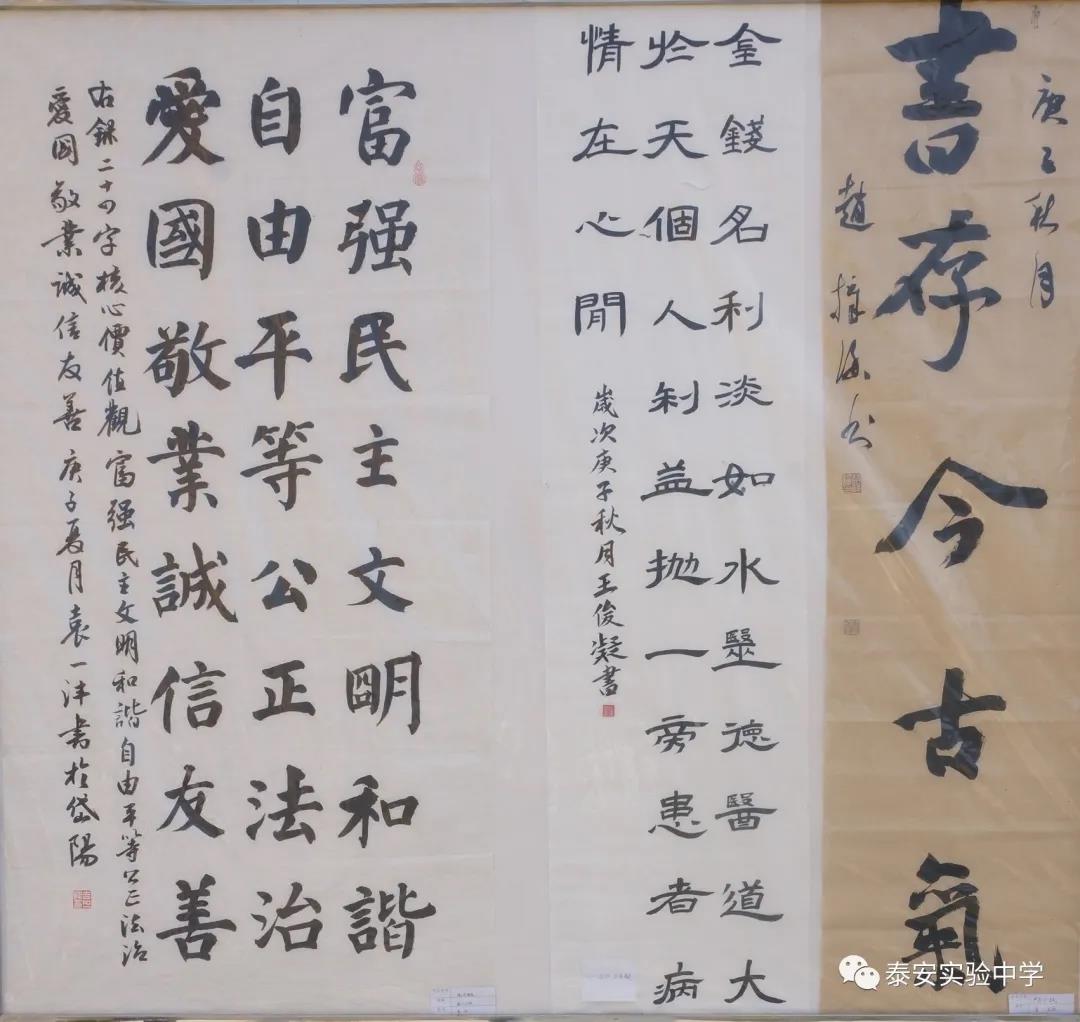 庚子秋月
書存今古氣
趙海书
金錢名利淡如水德醫道大
於天個人利益拋一旁患者病
情在心閒
歲次庚子秋月王俊凝書
富强民主文明和諧
自由平等公正法治
愛國敬業誠信友善
右録二十四字核心價值觀富强民主文明和諧自由平等公正法治
愛國敬業誠信友善庚子夏月袁一沣書於岱陽
泰安实验中学